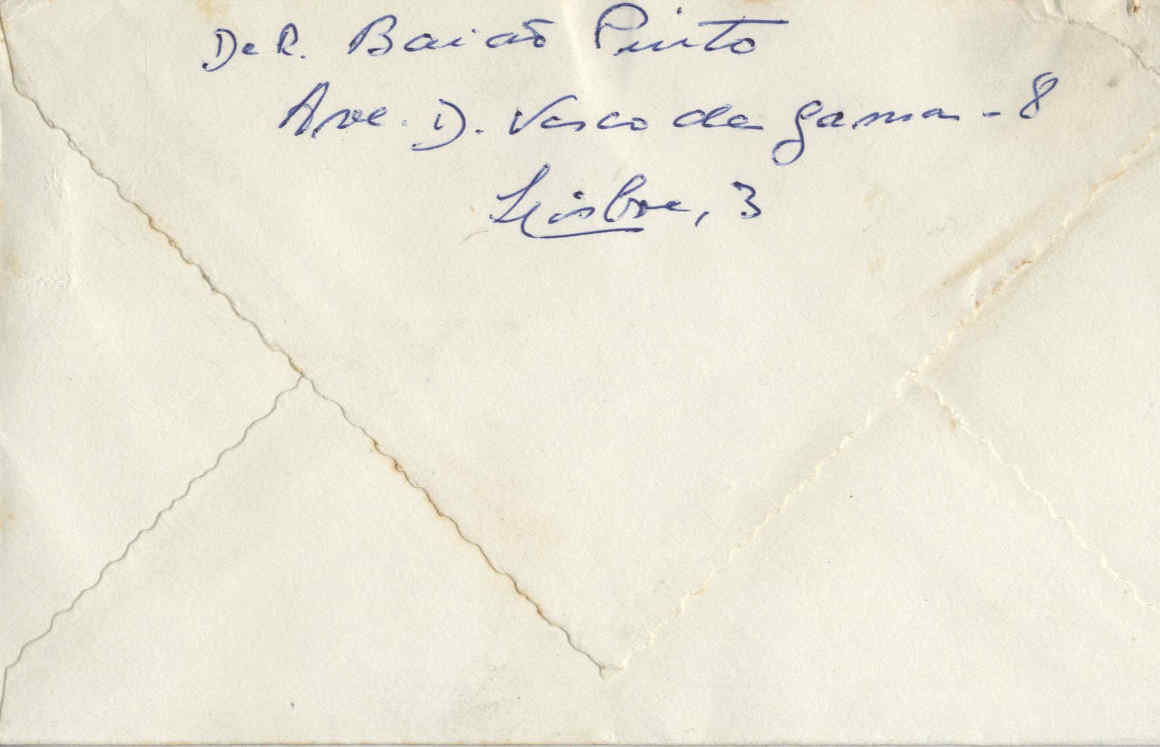 De R. Baião Pinto
Ave. D. Vasco da Gama - 8
Lisboa, 3